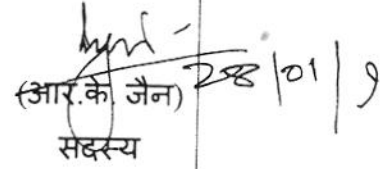 (आर.के. जैन) 28/01/
सदस्य